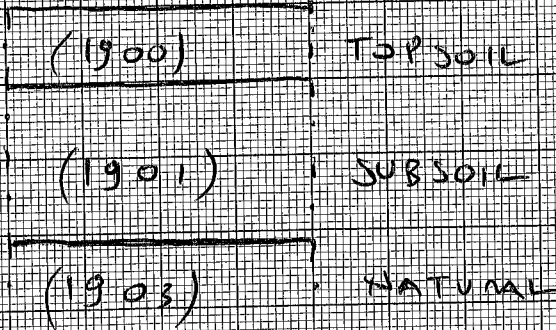 (1900) TOPSOIL
(1901) SUBSOIL
(1903) NATURAL